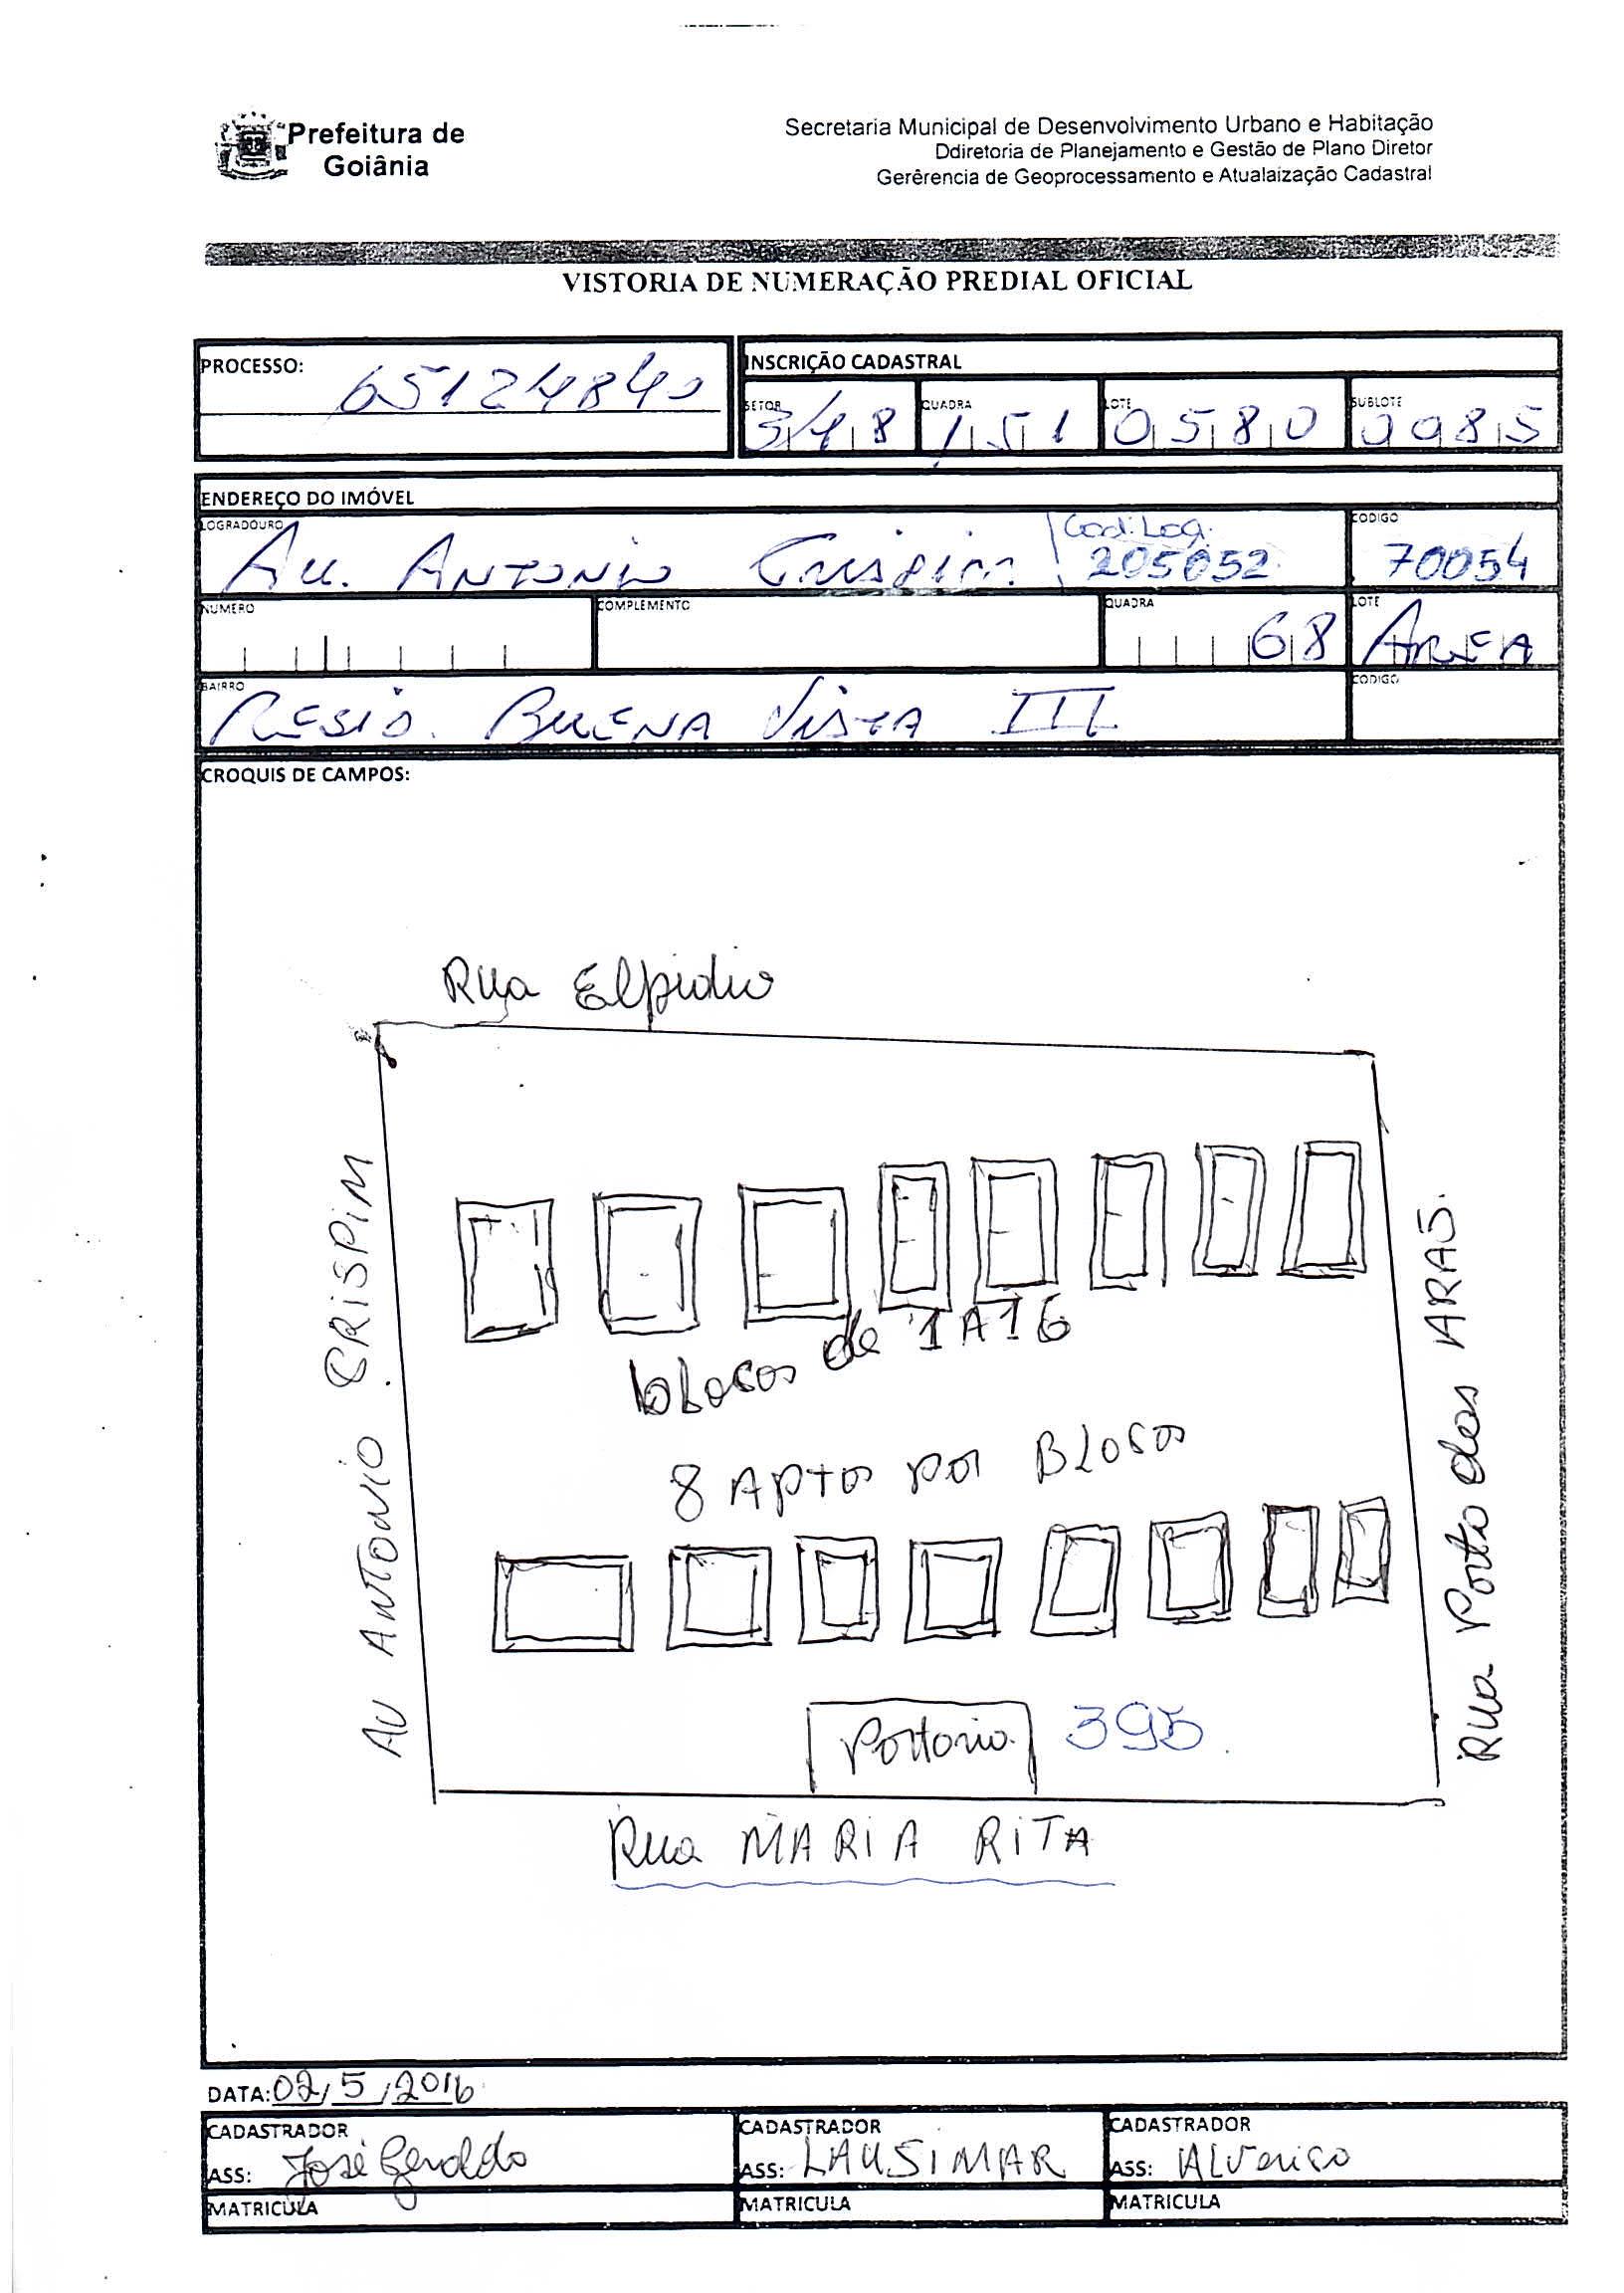 Prefeitura de
Goiânia
Secretaria Municipal de Desenvolvimento Urbano e Habitação
Ddiretoria de Planejamento e Gestão de Plano Diretor
Gerêrencia de Geoprocessamento e Atualaização Cadastral
VISTORIA DE NUMERAÇÃO PREDIAL OFICIAL
PROCESSO: 65124840
INSCRIÇÃO CADASTRAL
SETOR 348 QUADRA 151 LOTE 0580 SUBLOTE 0085
ENDEREÇO DO IMÓVEL
LOGRADOURO Av. ANTONIO Crispim Cod. Log. 205052 CODIGO 70054
NUMERO COMPLEMENTO QUADRA 68 LOTE AREA
BAIRRO RESID. BUENA VISTA III CODIGO
CROQUIS DE CAMPOS:
Rua Elpidio
AV ANTONIO CRISPIM
Rua Porto das ARAS.
blocos de 1 A 16
8 APtos por BLocos
Portaria 395
Rua MARIA RITA
DATA: 02/5/2016
CADASTRADOR CADASTRADOR CADASTRADOR
ASS: José Geraldo ASS: LAUSIMAR ASS: ALverico
MATRICULA MATRICULA MATRICULA